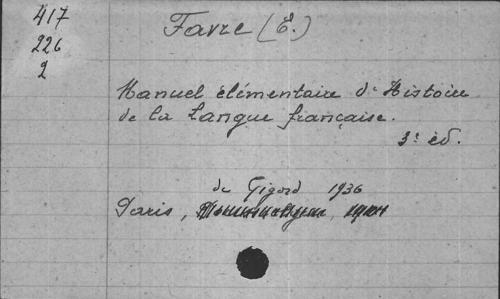 417
226
2
Favre (E.)
Manuel élémentaire d'Histoire
de la Langue française.
3e éd.
de Gigord 1936
Paris,